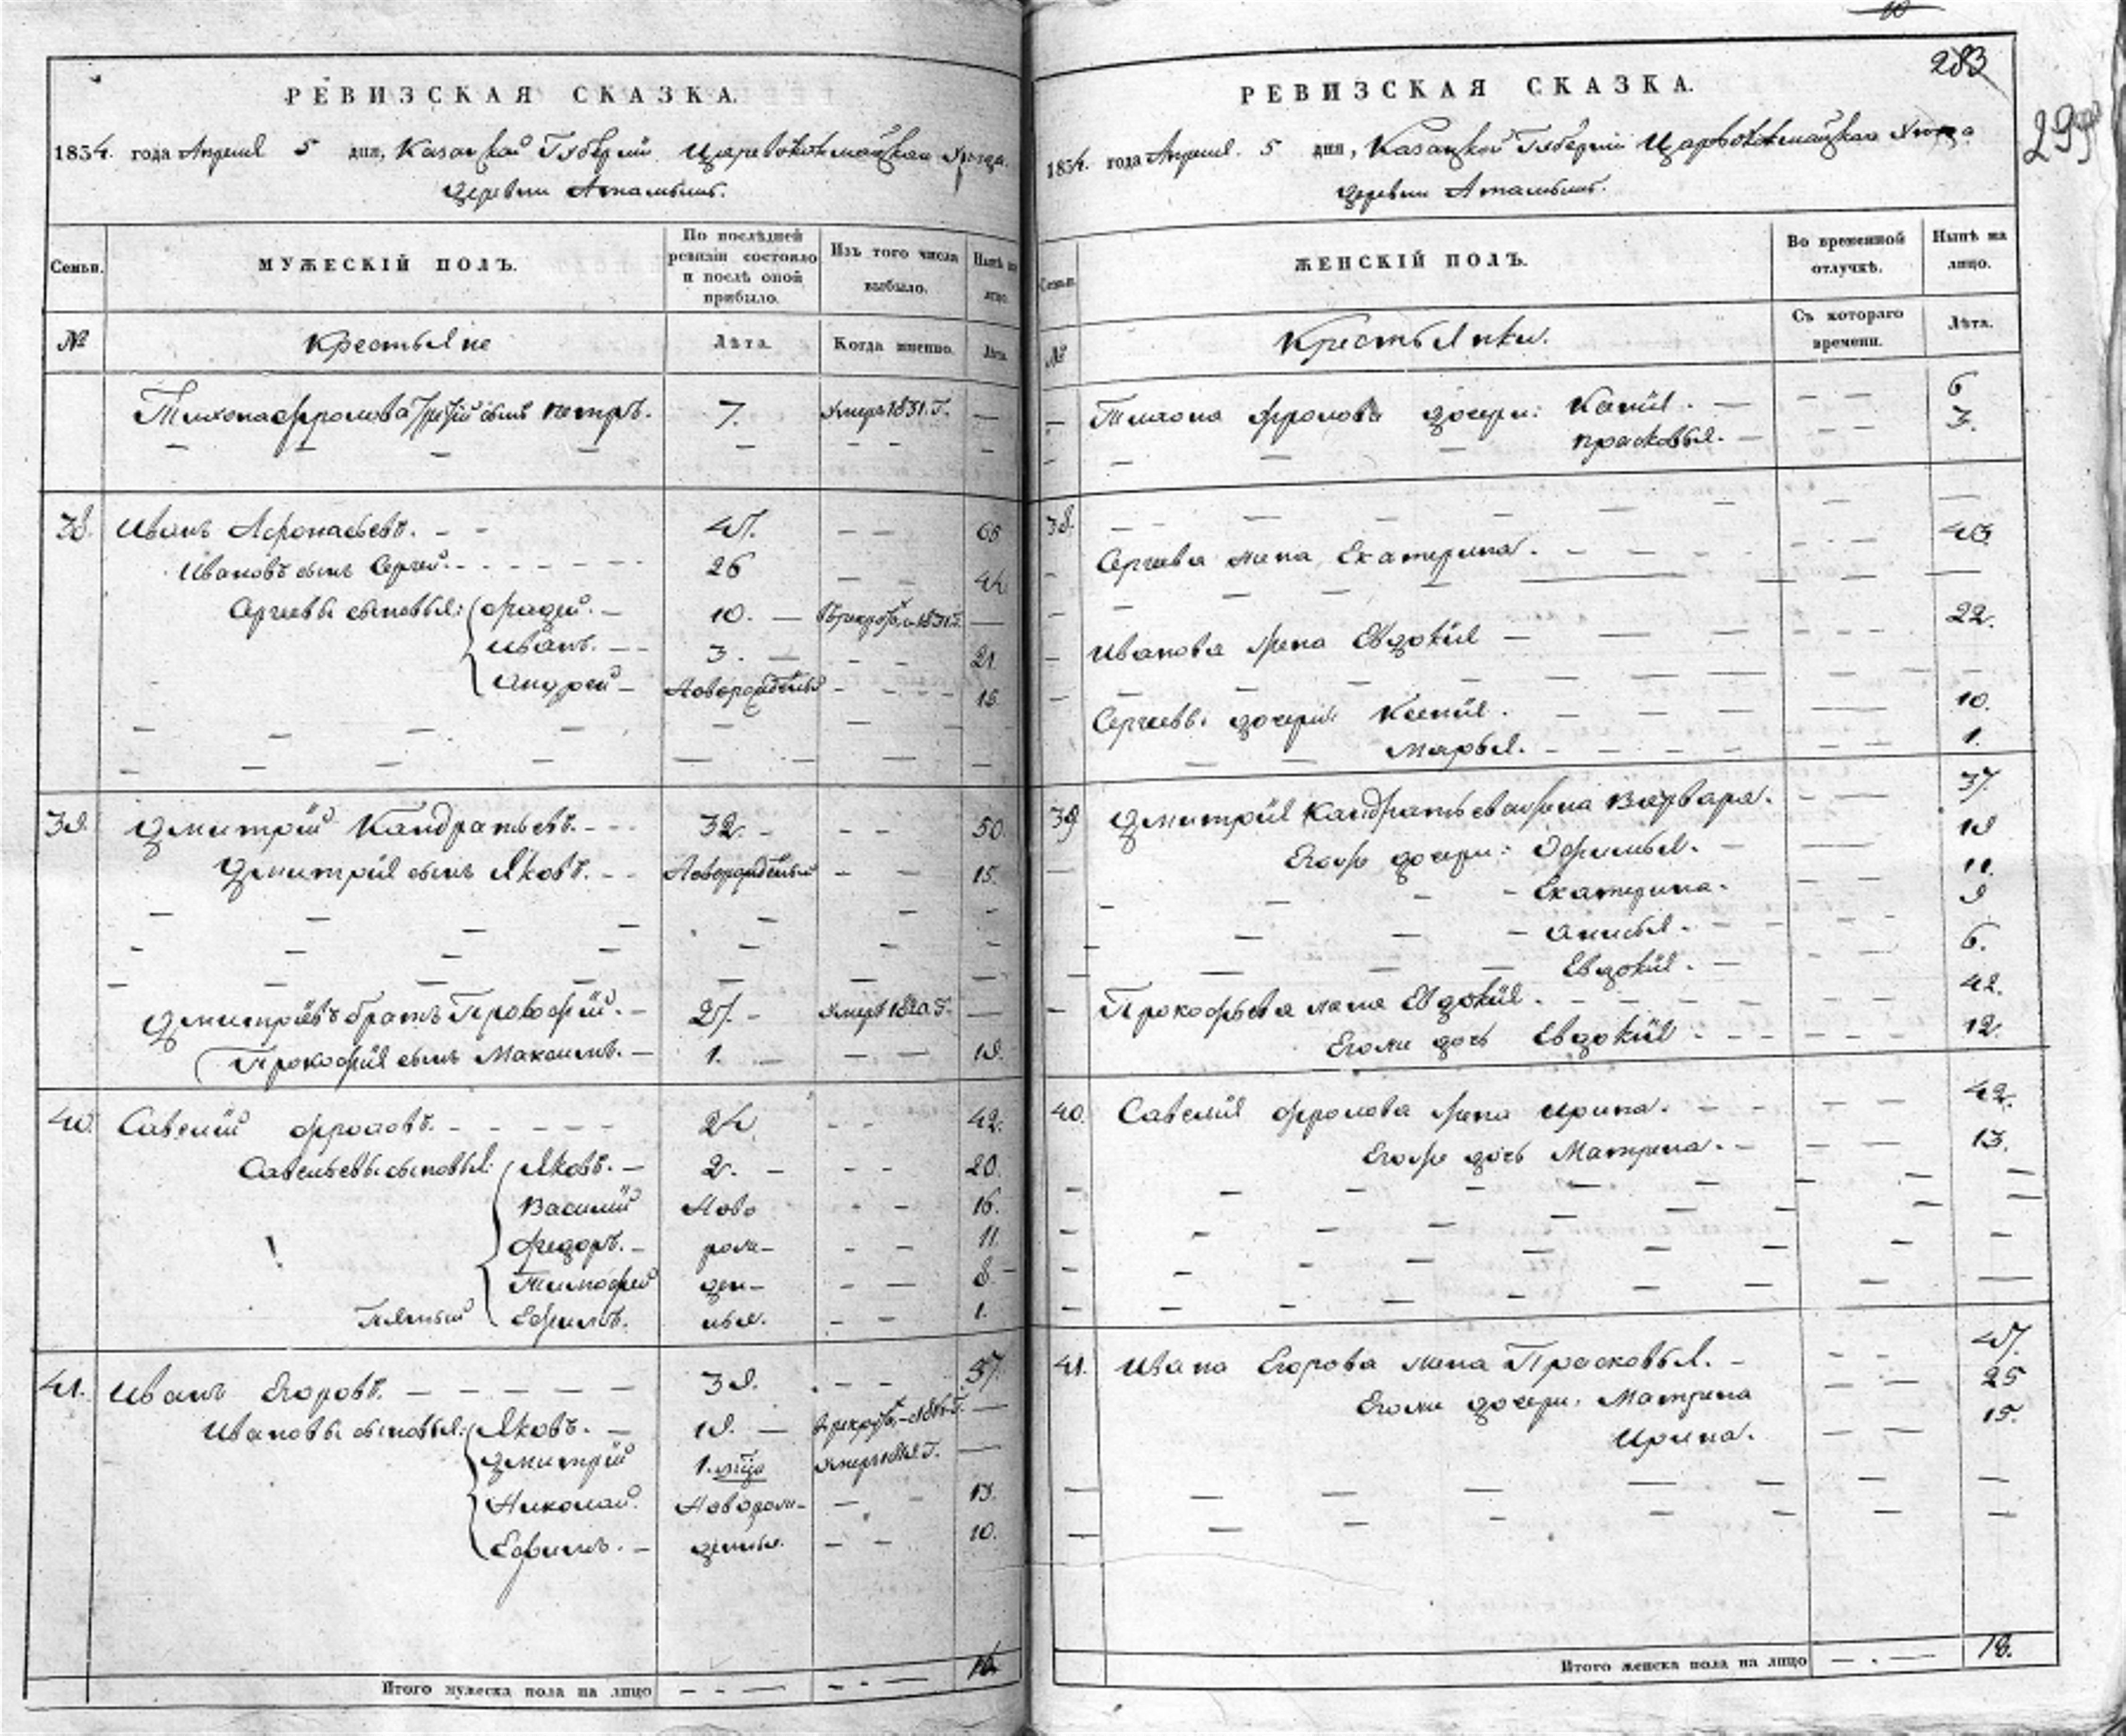 РЕВИЗСКАЯ СКАЗКА.
1834. года Апреля 5 дня, Казанской Губернии Царевококшайскаго Уезда
Деревни Аталымъ.
Семьи.
МУЖЕСКІЙ ПОЛЪ.
По послѣдней ревизіи состояло и послѣ оной прибыло.
Изъ того числа выбыло.
Нынѣ на лицо.
№
Крестьяне
Лѣта.
Когда именно.
Лѣта.
Тихона Фролова сынъ Петръ. 7. умеръ 1831. Г. —
38. Иванъ Афонасьевъ. — — 47. — —
Ивановъ сынъ Сергей. 26 — — 44
Сергеевы сыновья: Фадей. — 10. —
Иванъ. — — 3. — — — 21
Андрей — Новорожденый — — — 15
39. Дмитрій Кандратьевъ. 32. — — — 50.
Дмитрія сынъ Яковъ. — — Новорожденый — — 15.
Дмитріевъ братъ Прокофій. — 27. — —
Прокофія сынъ Максимъ. — 1. — — — 19.
40. Савелій Фроловъ. 24. — — 42.
Савельевы сыновья: Яковъ. — 2. — — — 20.
Василій Ново — — 16.
Федоръ. — рож— — — 11
Тимофей ден— — — 8.
Пятый Ефимъ. ныя. — — 1.
41. Иванъ Егоровъ. — — — — 39. — — 57.
Ивановы сыновья: Яковъ. — 19. — —
Дмитрій 1. —
Николай. Новорож— — 13.
Ефимъ. — денныя. — — 10.
Итого мужеска пола на лицо — - — — - — 16.
283
299
РЕВИЗСКАЯ СКАЗКА.
1834. года Апреля. 5 дня, Казанской Губерніи Царевококшайскаго Уезда
Деревни Аталымъ.
Семьи.
ЖЕНСКІЙ ПОЛЪ.
Во временной отлучкѣ.
Нынѣ на лицо.
№
Крестьянки.
Съ котораго времени.
Лѣта.
Тихона Фролова дочери: — — — 6
Прасковья. — — — 3.
38.
Сергеева жена Екатерина. — — — 43
Иванова жена Евдокія — — — 22.
Сергеевы дочери: Ксенія. — — — 10.
Марья. — — — 1.
39 Дмитрія Кандратьева жена Варвара. — — 37
Егожъ дочери: Офимья. — — 19
Екатерина. — — 11.
Анисья. — — 9
Евдокія. — — — 6.
Прокофьева жена Евдокія. — — — 42.
Егожъ дочь Евдокія — — — 12.
40. Савелія Фролова жена Ирина. — — — 42.
Егожъ дочь Матрена. — — — 13.
41. Ивана Егорова жена Прасковья. — — — 47.
Егожъ дочери: Матрена — — 25
Ирина. — — 15.
Итого женска пола на лицо — . — 18.